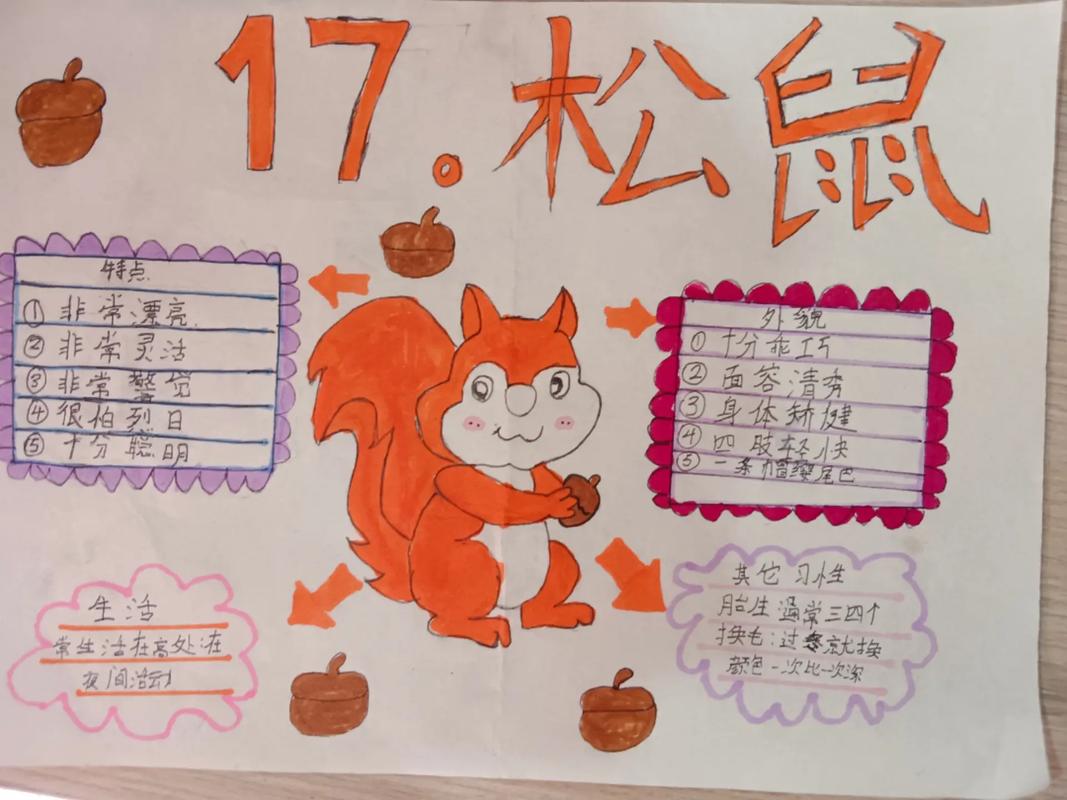 17. 松鼠
特点
① 非常漂亮
② 非常灵活
③ 非常警觉
④ 很怕列日
⑤ 十分聪明
外貌
① 十分乖巧
② 面容清秀
③ 身体矫健
④ 四肢轻快
⑤ 一条帽缨尾巴
生活
常生活在高处,在
夜间活动
其它习性
胎生通常三四个
换毛:过冬就换
颜色一次比一次深